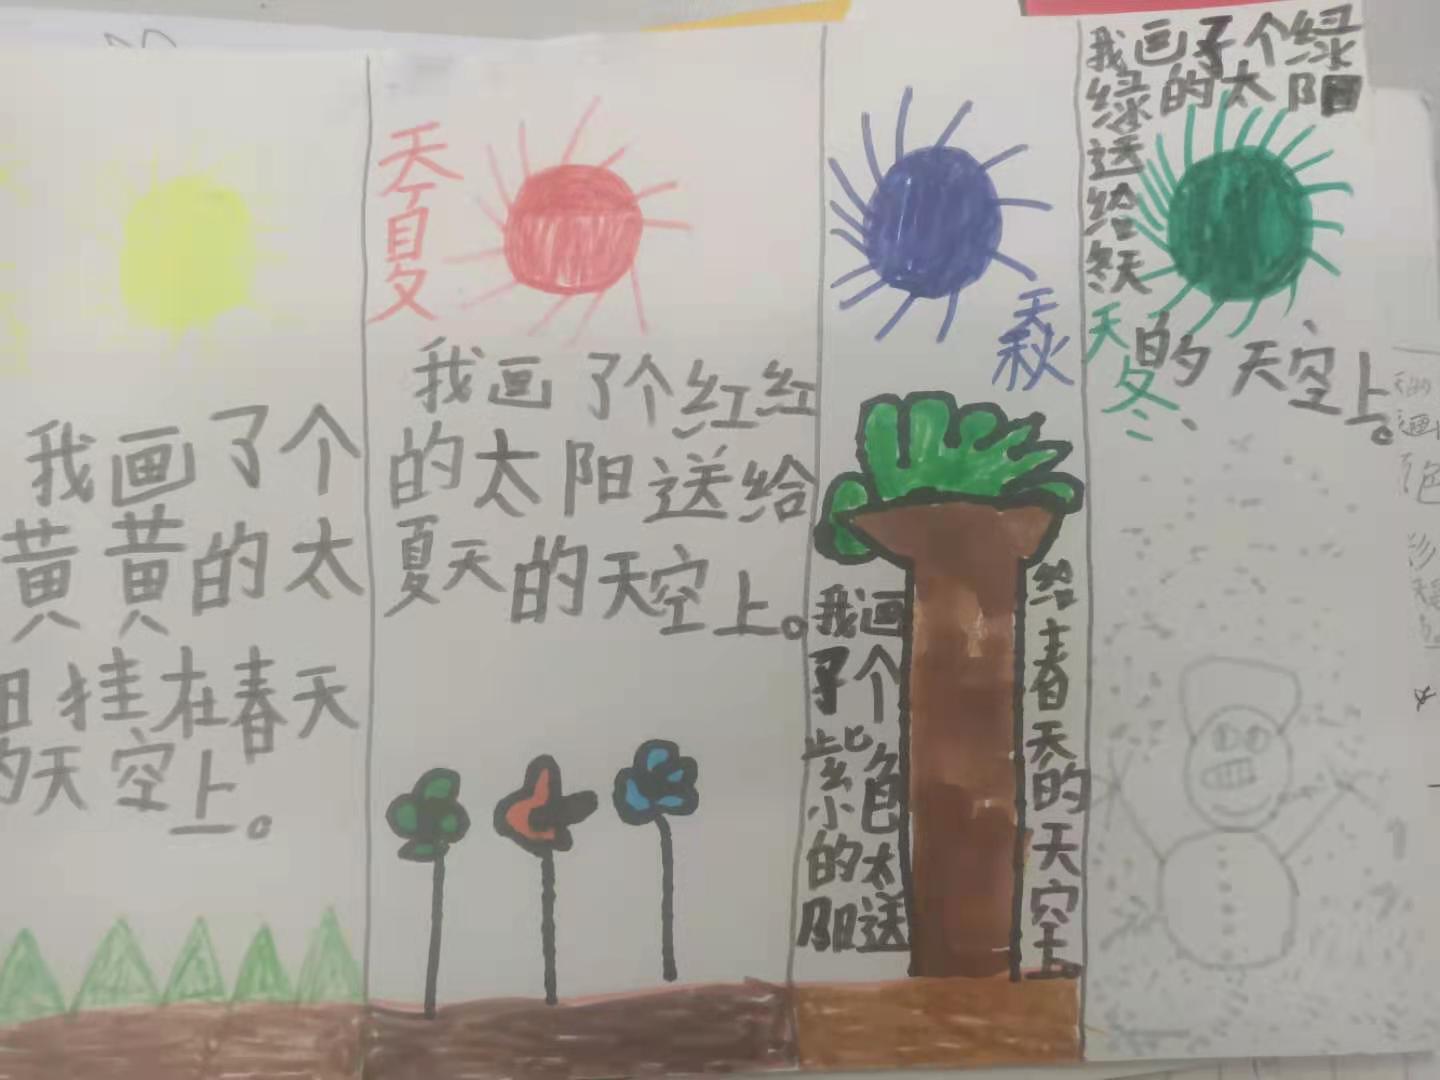 我画了个
黄黄的太
阳挂在春天
的天空上。
夏天
我画了个红红
的太阳送给
夏天的天空上。
秋天
我画
了个
紫色
的太
阳送
给春天的天空上。
我画了个绿
绿的太阳
送给冬天
的天空上。
冬天